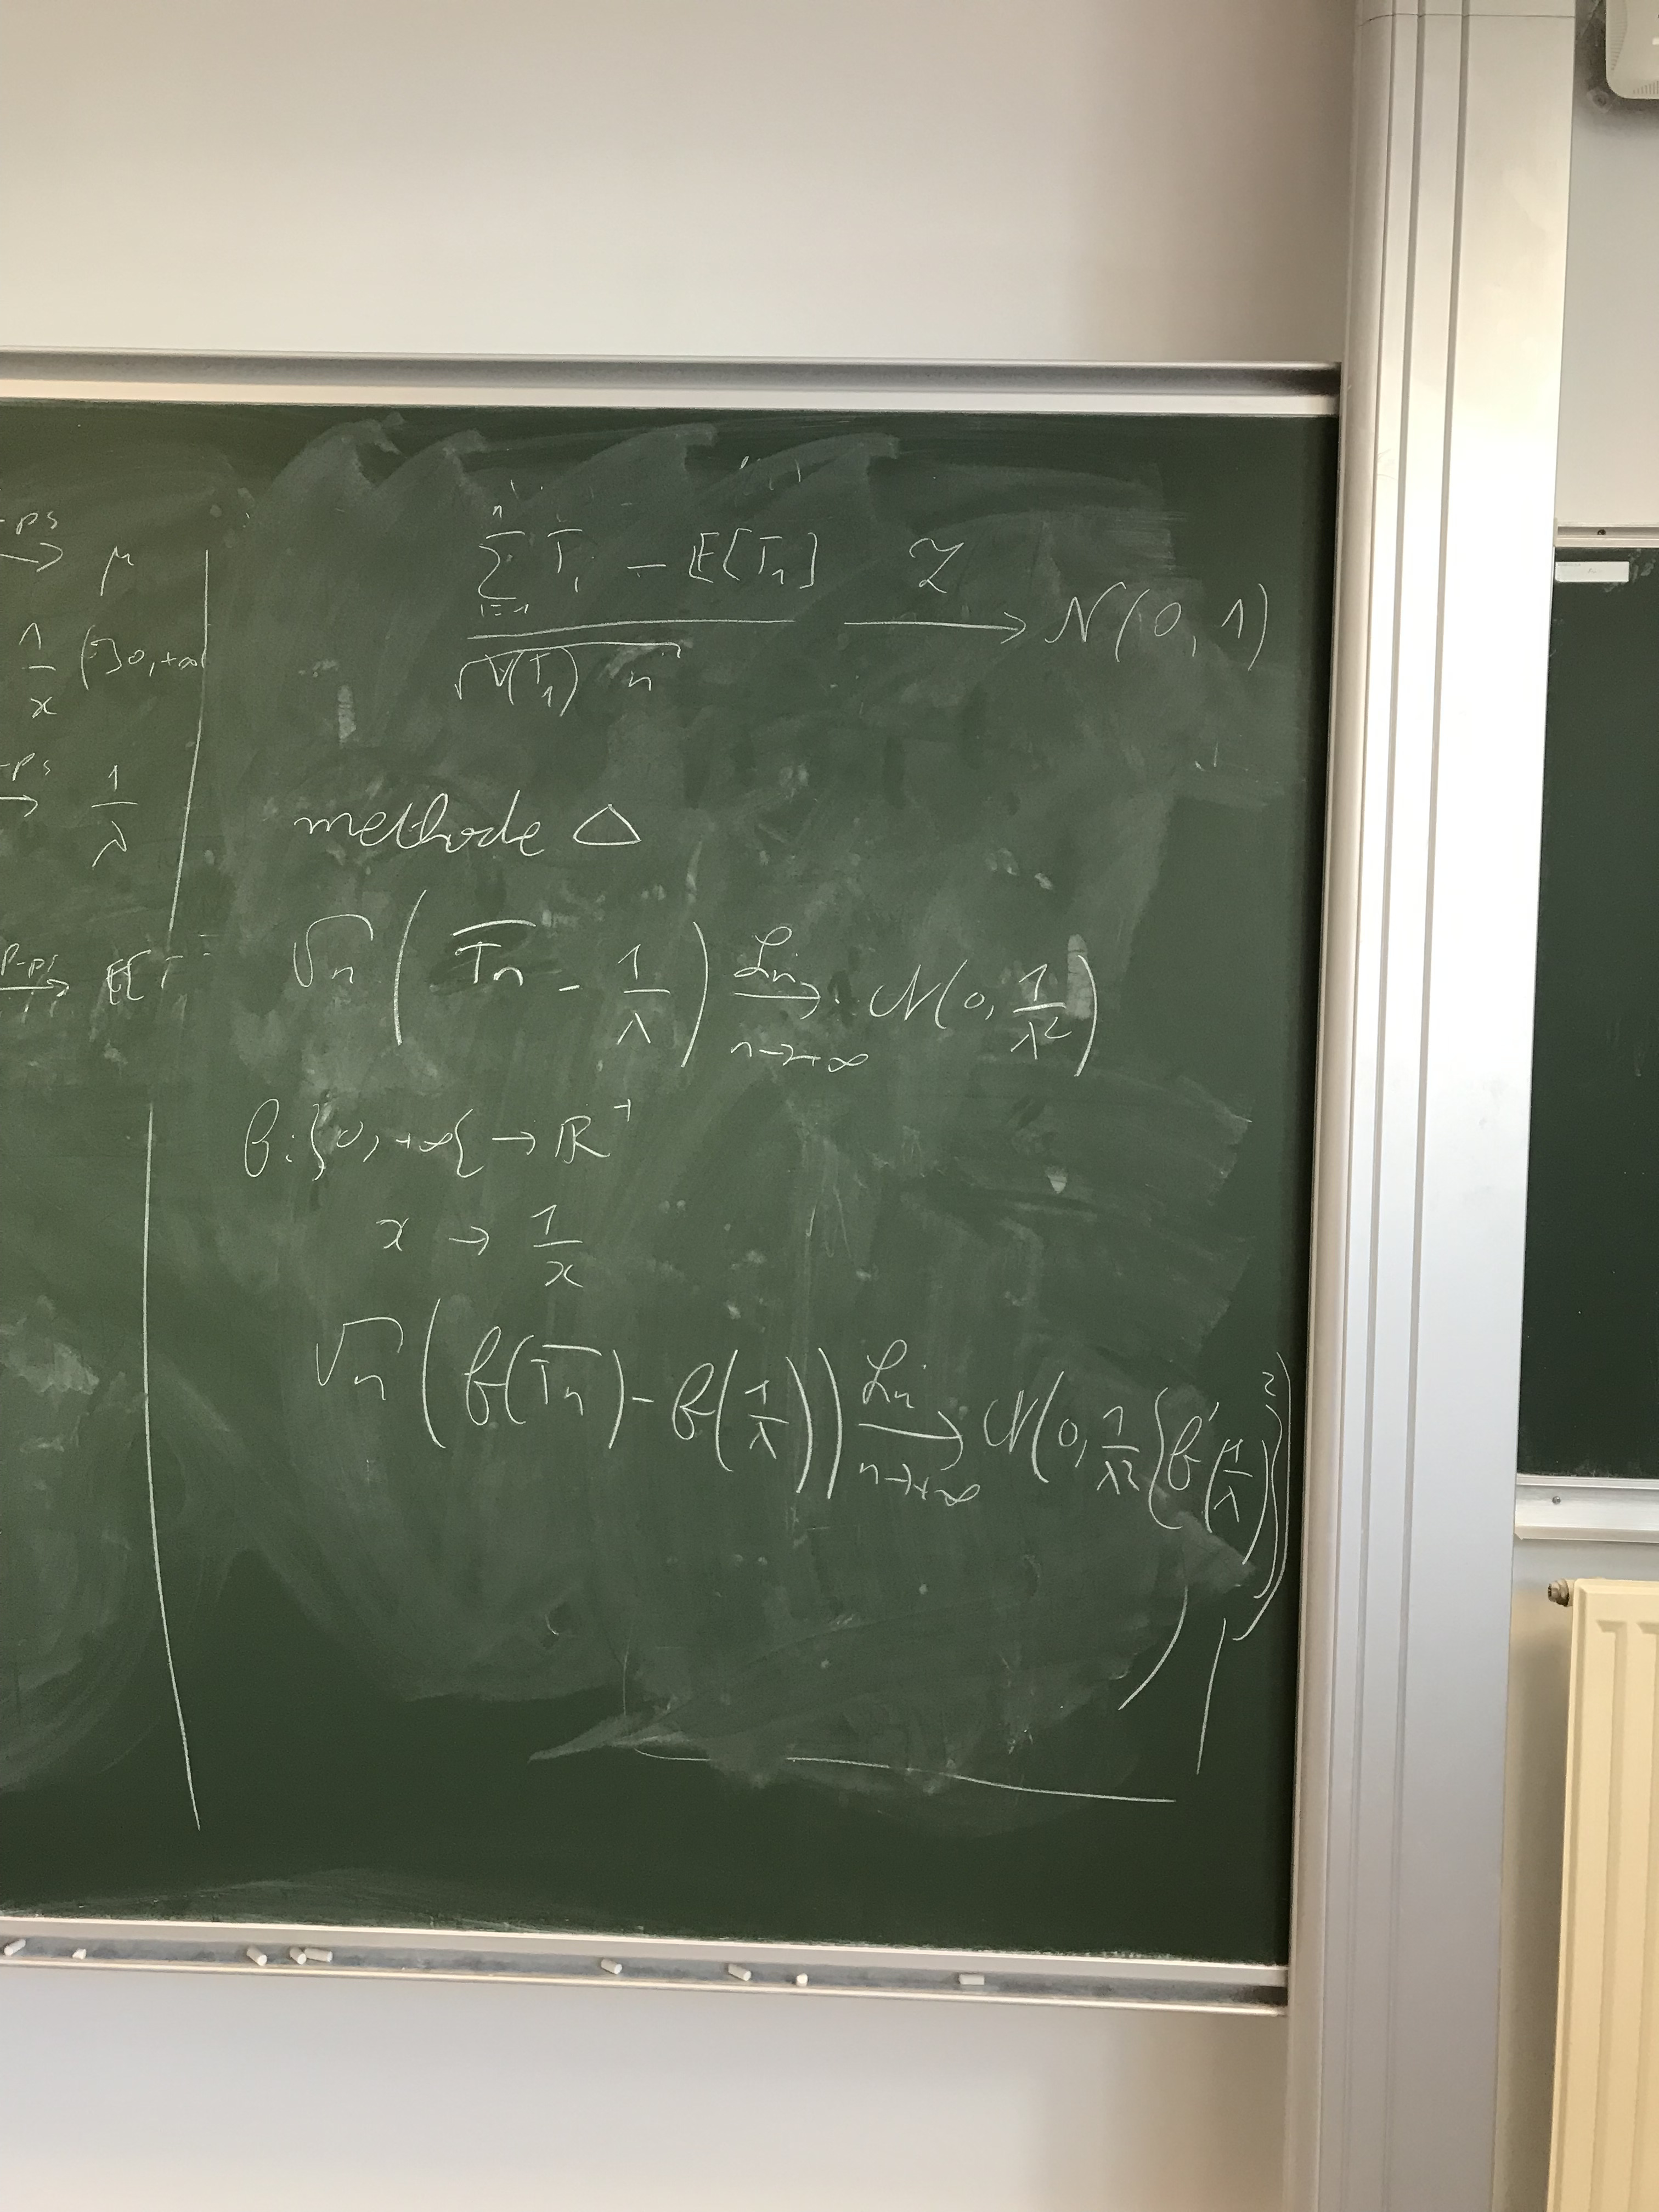 -ps → μ
1/x (]0,+∞
-ps → 1/λ
P-ps → E[T
∑_{i=1}^{n} T_i - E[T_1] / √V(T_1) n →^{L} N(0, 1)
methode Δ
√n ( \overline{T_n} - 1/λ ) →^{Loi}_{n→+∞} N(0, 1/λ²)
f: ]0, +∞[ → R^+
x → 1/x
√n ( f(\overline{T_n}) - f(1/λ) ) →^{Loi}_{n→+∞} N(0, 1/λ² (f'(1/λ))²)